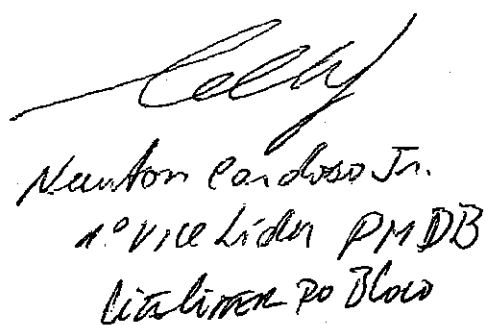 Newton Cardoso Jr.
1º Vice Líder PMDB
do Bloco